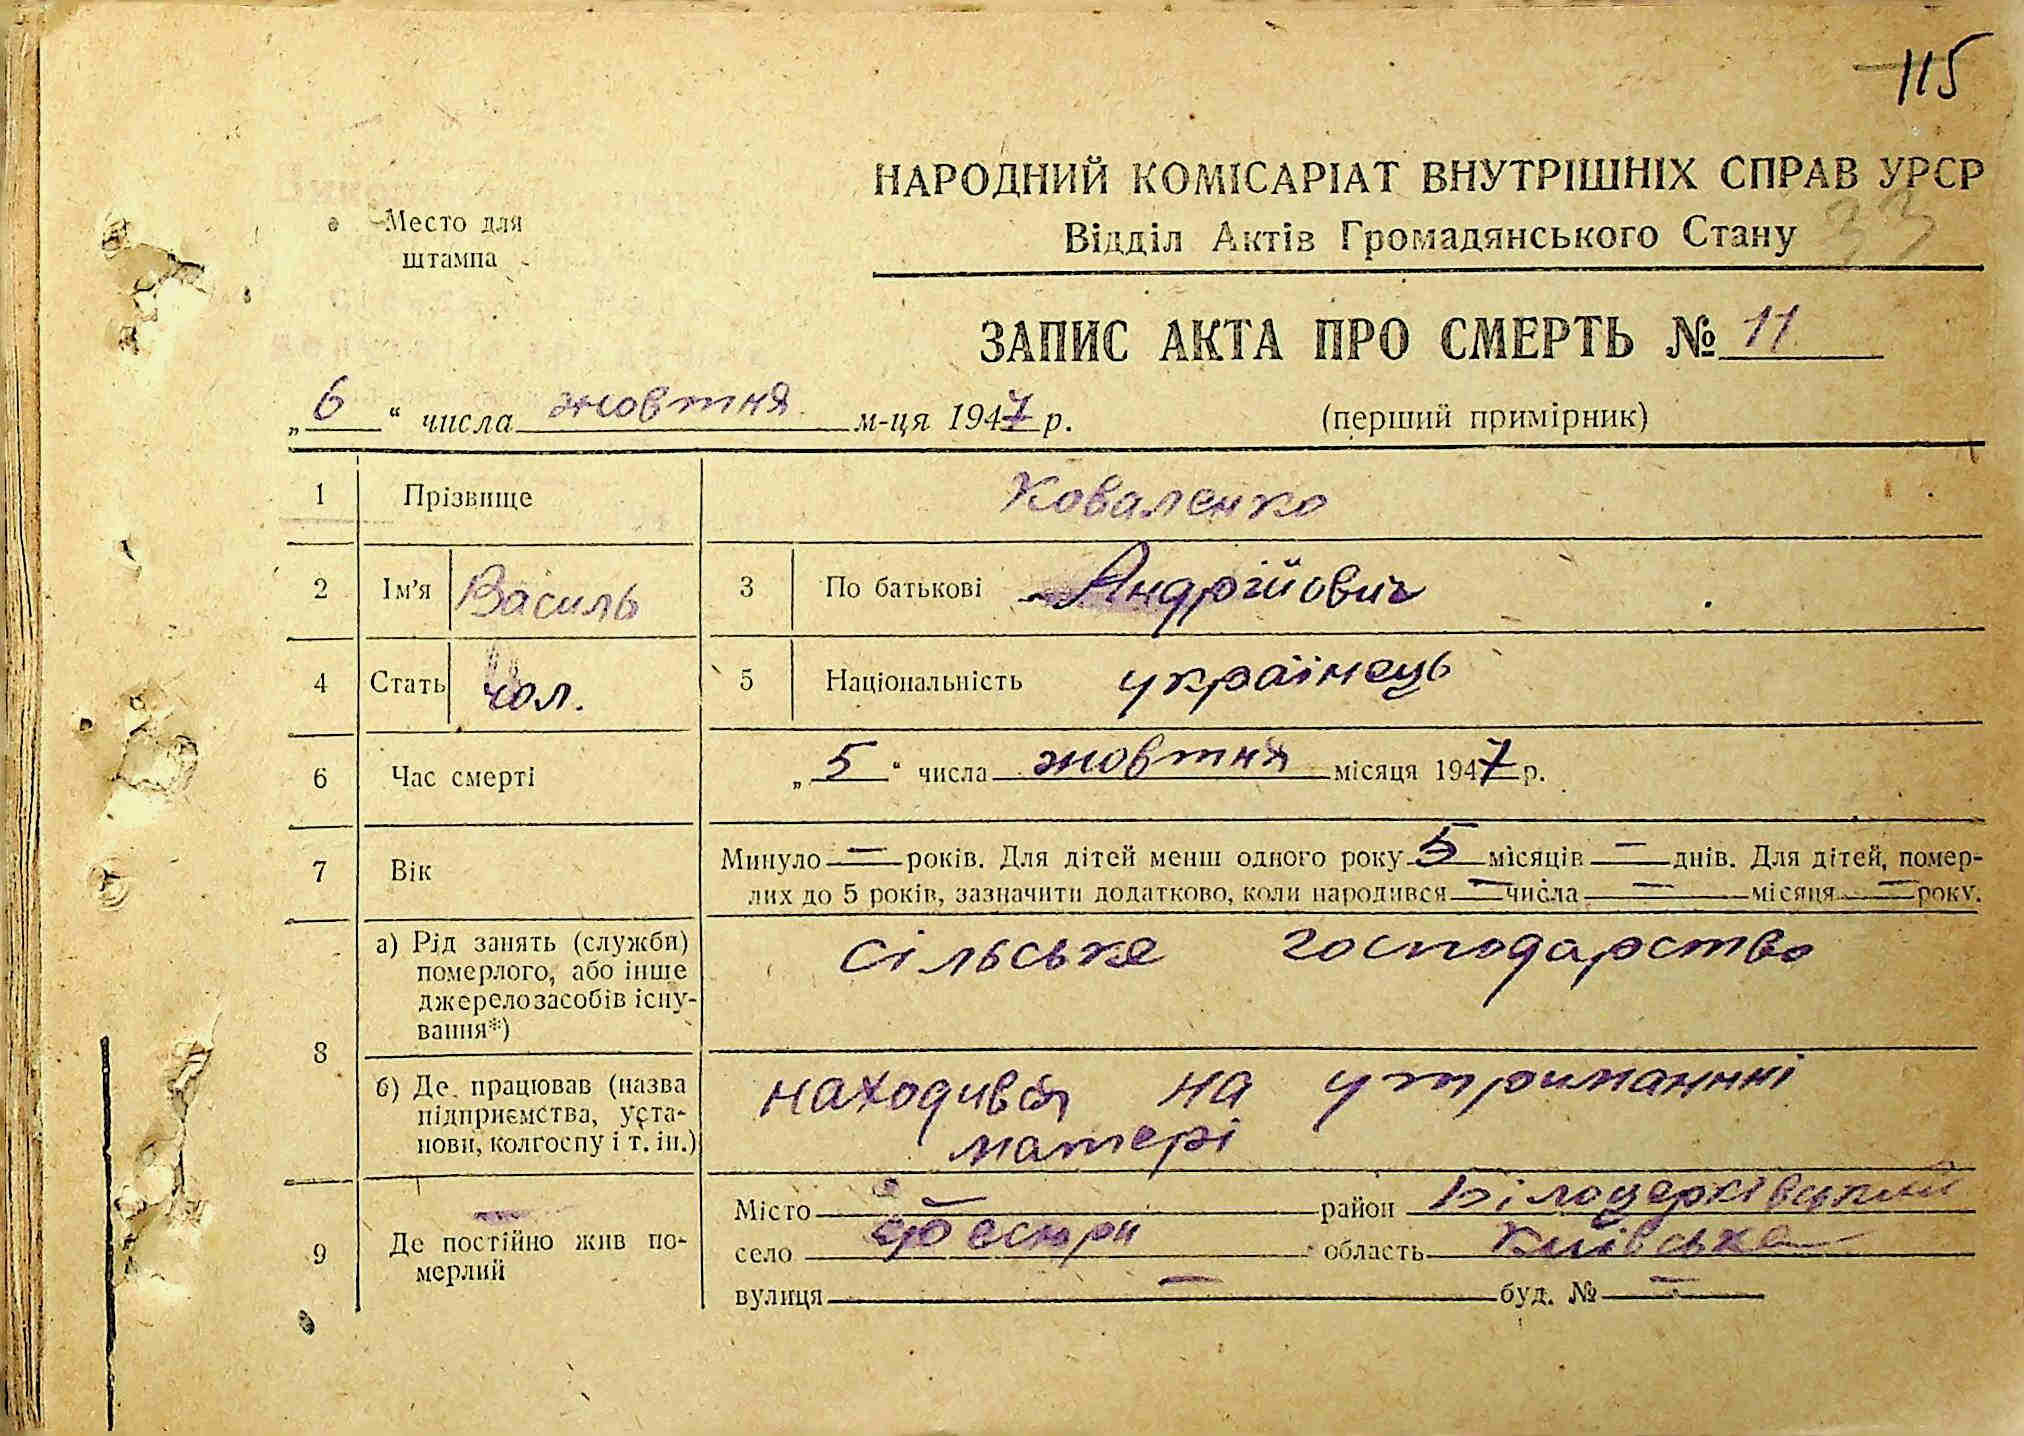 115
НАРОДНИЙ КОМІСАРІАТ ВНУТРІШНІХ СПРАВ УРСР
33
Место для
штампа
Відділ Актів Громадянського Стану
ЗАПИС АКТА ПРО СМЕРТЬ № 11
„ 6 “ числа жовтня м-ця 1947 р. (перший примірник)
1 Прізвище Коваленко
2 Ім'я Василь 3 По батькові Андрійович
4 Стать чол. 5 Національність українець
6 Час смерті „ 5 “ числа жовтня місяця 1947 р.
7 Вік Минуло — років. Для дітей менш одного року 5 місяців — днів. Для дітей, помер-
лих до 5 років, зазначити додатково, коли народився — числа — місяця — року.
8 а) Рід занять (служби)
померлого, або інше
джерело засобів існу-
вання*)
сільське господарство
б) Де працював (назва
підприємства, уста-
нови, колгоспу і т. ін.)
находився на утриманнні
матері
9 Де постійно жив по-
мерлий
Місто — район Білоцерківський
село область Київська
вулиця — буд. № —